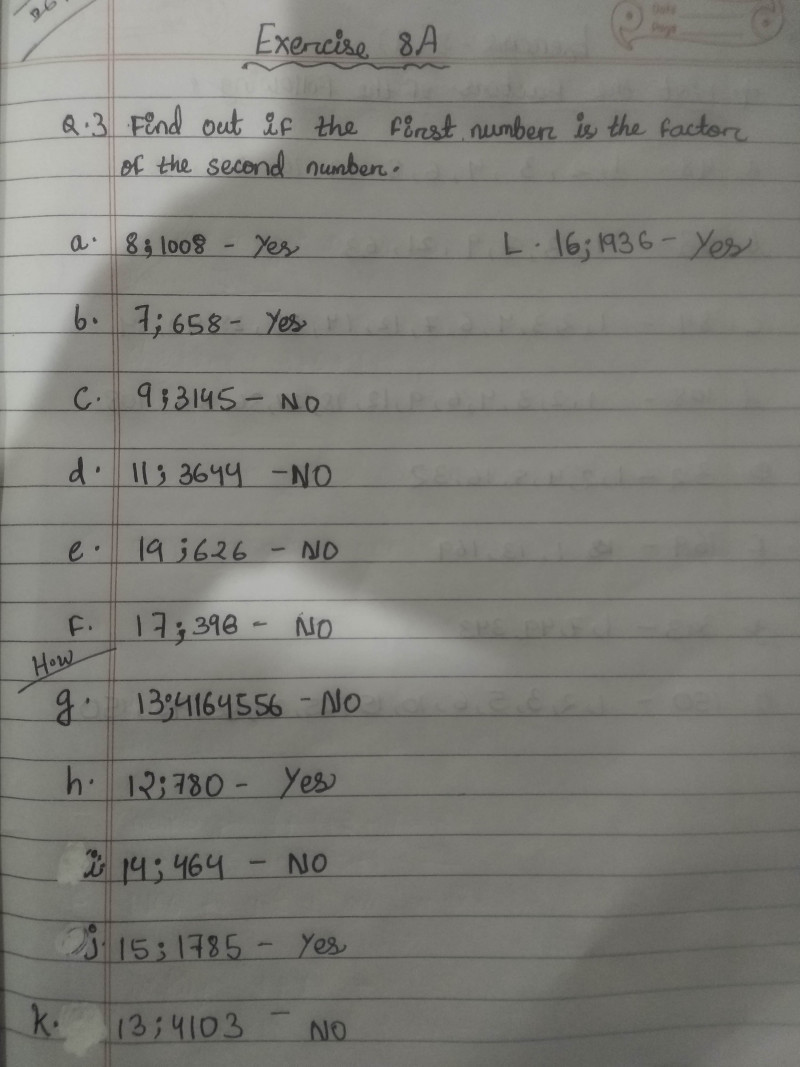 Exercise 8A
Q.3 Find out if the first number is the factor
of the second number.
a. 8;1008 - Yes
L. 16;1936 - Yes
b. 7;658 - Yes
c. 9;3145 - NO
d. 11; 3644 - NO
e. 19;626 - NO
F. 17;398 - NO
How
g. 13;4164556 - NO
h. 12;780 - Yes
i 14;464 - NO
j. 15;1785 - Yes
k. 13;4103 - NO